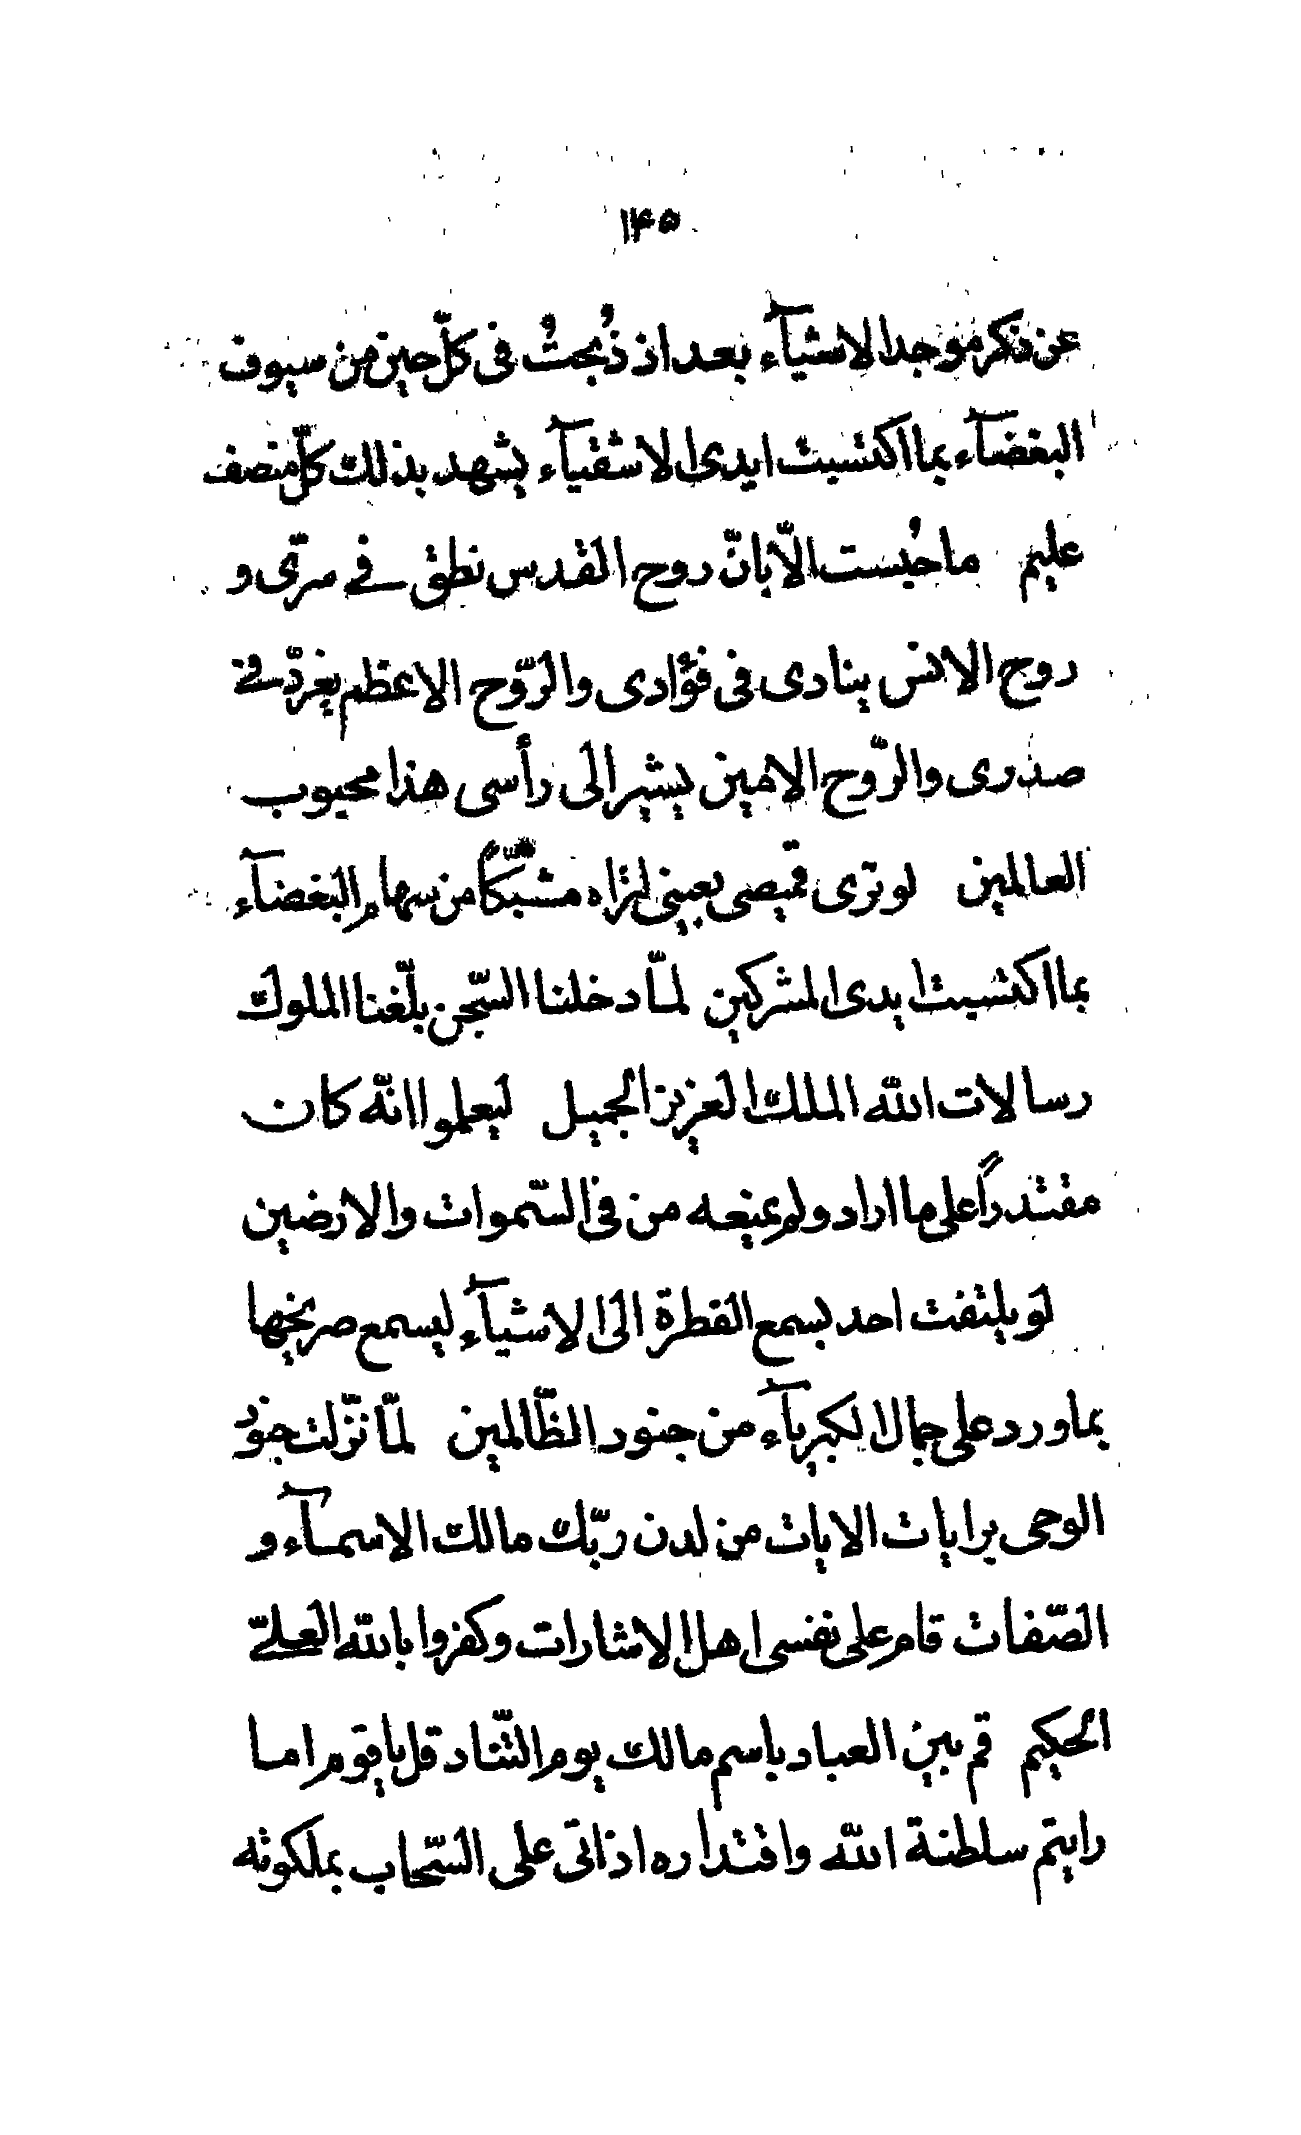 ۱۴۵
عن ذكر موجد الاشيآء بعد اذ ذُبحتُ فى كلّ حين من سيوف
البغضآء بما اكتسبت ايدى الاشقيآء يشهد بذلك كلّ منصف
عليم ما حُبست الّا بانّ روح القدس نطق فى صرتى و
روح الانس ينادى فى فؤادى والرّوح الاعظم يغرّد فى
صدرى والرّوح الامين يشير الى رأسى هذا محبوب
العالمين لو ترى قميصى بعينى لتراه مشبّكاً من سهام البغضآء
بما اكتسبت ايدى المشركين لمّا دخلنا السّجن بلّغنا الملوك
رسالات الله الملك العزيز الجميل ليعلموا انّه كان
مقتدراً على ما اراد ولم يمنعه من فى السّموات والارضين
لو يلتفت احد يسمع القطرة الى الاشيآء ليسمع صريخها
بما ورد على جمال الكبريآء من جنود الظّالمين لمّا نزّلت جنود
الوحى برايات الايات من لدن ربّك مالك الاسمآء و
الصّفات قام على نفسى اهل الاشارات وكفروا بالله العلىّ
الحكيم قم بين العباد باسم مالك يوم التّناد قل يا قوم اما
رايتم سلطنة الله واقتداره اذ اتى على السّحاب بملكوته